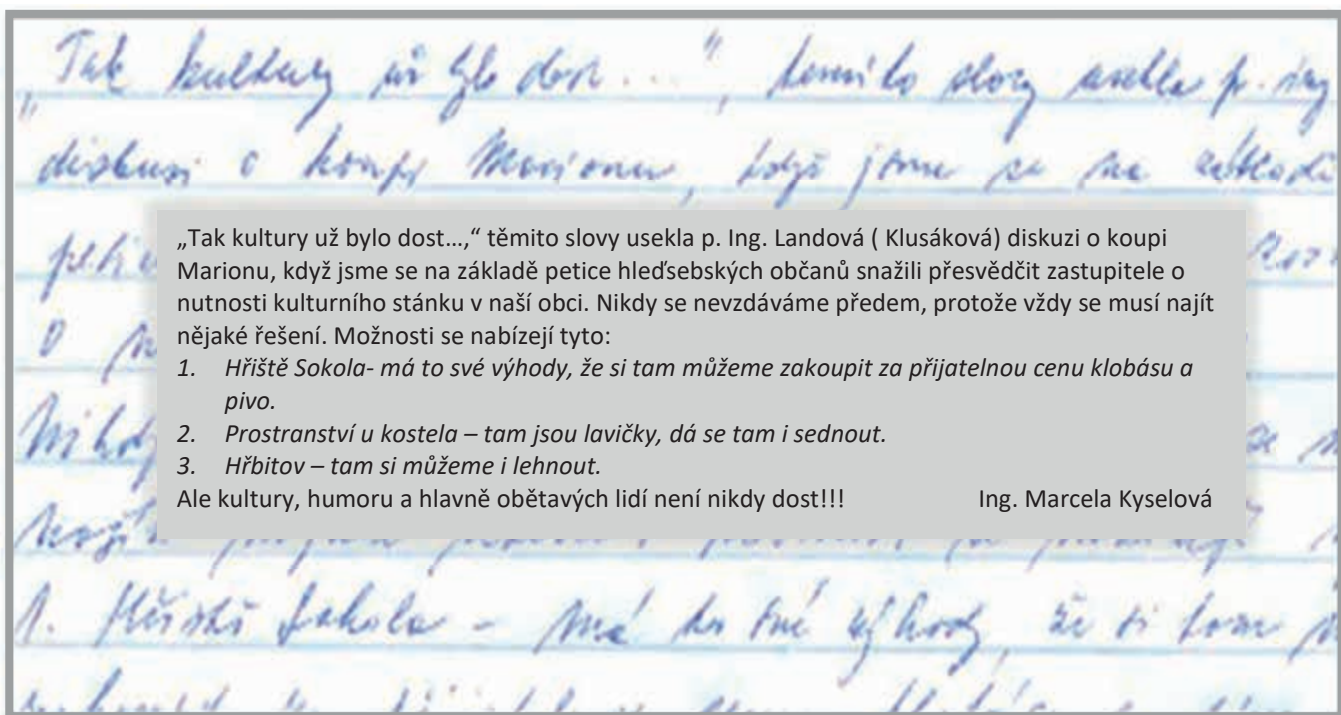 „Tak kultury už bylo dost...", těmito slovy usekla p. ing
diskusi o koupi Marionu, když jsme se na základě
„Tak kultury už bylo dost…,“ těmito slovy usekla p. Ing. Landová ( Klusáková) diskuzi o koupi
Marionu, když jsme se na základě petice hleďsebských občanů snažili přesvědčit zastupitele o
nutnosti kulturního stánku v naší obci. Nikdy se nevzdáváme předem, protože vždy se musí najít
nějaké řešení. Možnosti se nabízejí tyto:
1. Hřiště Sokola- má to své výhody, že si tam můžeme zakoupit za přijatelnou cenu klobásu a
pivo.
2. Prostranství u kostela – tam jsou lavičky, dá se tam i sednout.
3. Hřbitov – tam si můžeme i lehnout.
Ale kultury, humoru a hlavně obětavých lidí není nikdy dost!!! Ing. Marcela Kyselová
1. Hřiště Sokola - má to své výhody, že si tam